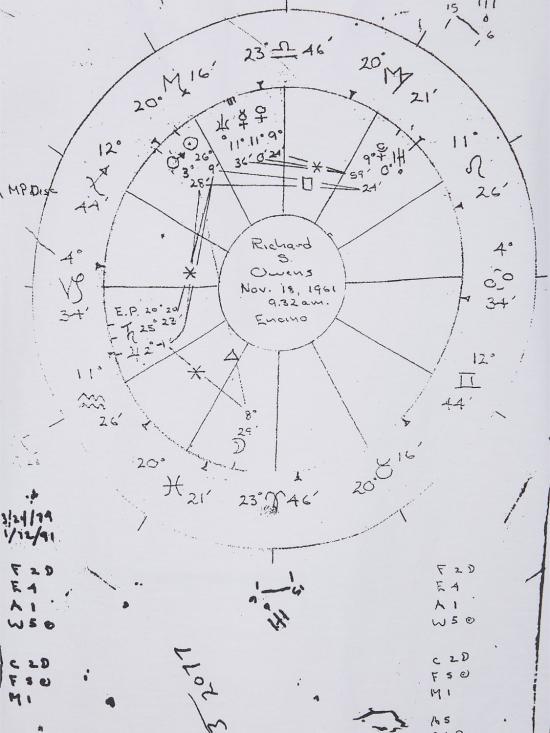 15
6
23° ♎ 46′
20° ♍ 21′
11° ♌ 26′
4° ♋ 34′
12° ♊ 44′
20° ♉ 16′
23° ♈ 46′
20° ♓ 21′
11° ♒ 26′
4° ♑ 34′
12° ♐ 44′
20° ♏ 16′
MP.Disc
♆ ☿ ♀
11° 11° 9°
36′ 0′ 24′
♂ ☉
3° 26°
28′ 9′
9° 0°
59′
24′
Richard
S.
Owens
Nov. 18, 1961
9.32 am.
Encino
E.P. 20° 20′
♄ 25° 22′
♃ 2°
8°
29′
☽
3/24/79
1/12/91
F 2D
E 4
A 1
W 5
C 2D
F 5
M 1
F 2D
E 4
A 1
W 5
C 2D
F 5
M 1